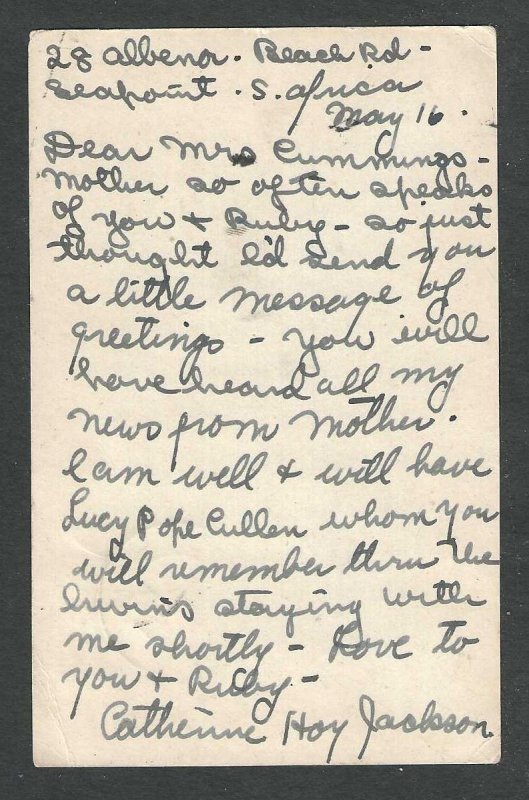 28 Albenor. Beach Rd -
Seapoint. S. Africa
May 16.
Dear Mrs Cummings -
Mother so often speaks
of you + Ruby - so just
thought I'd send you
a little message of
greetings - you will
have heard all my
news from Mother.
I am well + will have
Lucy Pope Cullen whom you
will remember thru the
Irwins staying with
me shortly - Love to
you + Ruby -
Catherine Hoy Jackson.